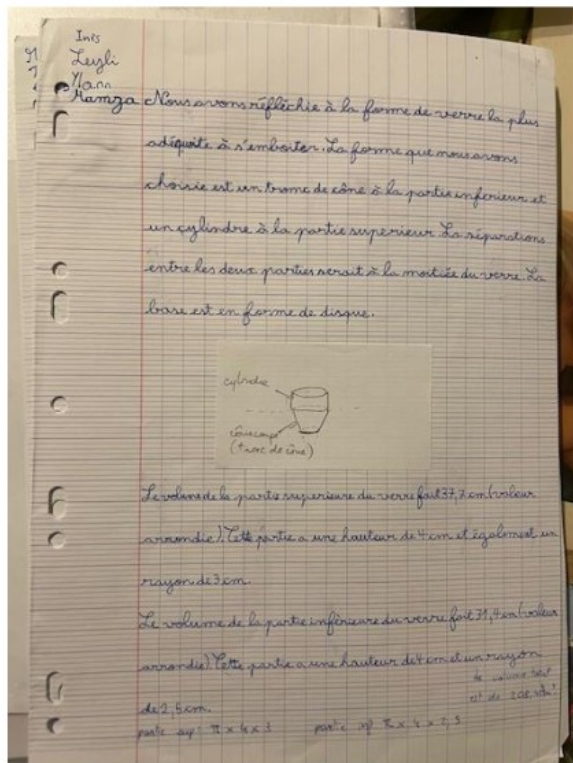 Inis
Leyli
Yann
Hamza Nous avons réfléchie à la forme de verre la plus
adéquate à s'emboiter. La forme que nous avons
choisie est un tronc de cône à la partie inferieur et
un cylindre à la partie superieur. La séparations
entre les deux parties serait à la moitiée du verre. La
base est en forme de disque.
cylindre
cône coupé
(tronc de cône)
Le volume de la partie superieure du verre fait 37,7 cm (valeur
arrondie). Cette partie a une hauteur de 4 cm et également un
rayon de 3 cm.
Le volume de la partie inférieure du verre fait 31,4 cm (valeur
arrondie). Cette partie a une hauteur de 4 cm et un rayon
de 2,5 cm.
le volume total
est de
partie sup: π x 4 x 3
partie inf π x 4 x 2,5